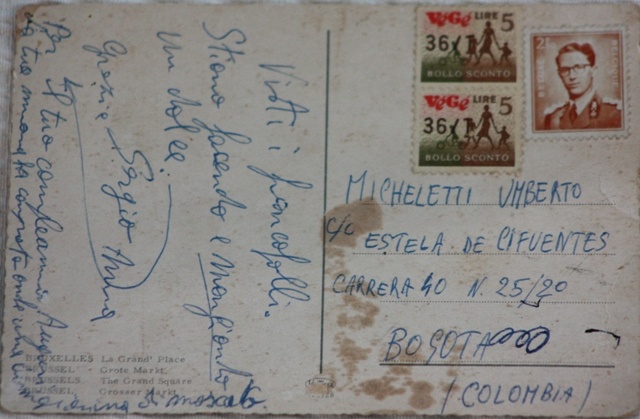 Visti i francobolli.
Stiamo facendo e mangiando
un dolce.
Grazie Sergio Anna
Per il tuo compleanno Auguri
la tua mamma
di moscato.
BRUXELLES La Grand' Place
BRUSSEL Grote Markt.
BRUSSELS The Grand Square
BRÜSSEL Grosser Markt
VéGé LIRE 5
36
BOLLO SCONTO
VéGé LIRE 5
36
BOLLO SCONTO
2F
BELGIE BELGIQUE
MICHELETTI UMBERTO
c/o ESTELA DE CIFUENTES
CARRERA 40 N. 25/20
BOGOTA
(COLOMBIA)